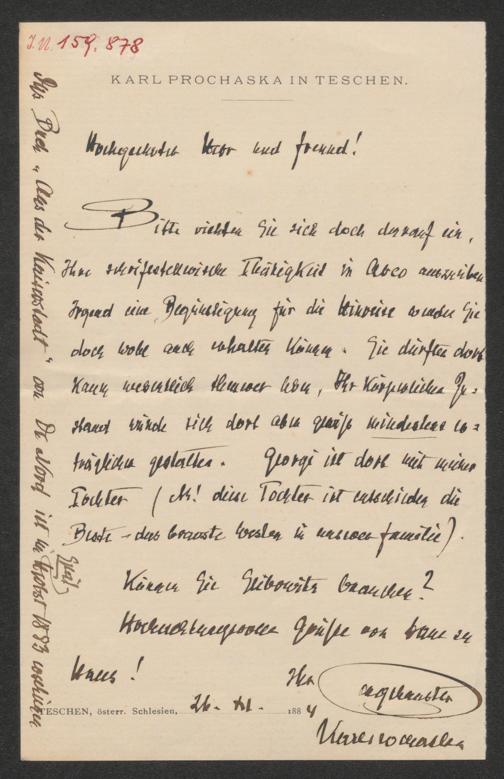 I.N. 159.878
KARL PROCHASKA IN TESCHEN.
Hochgeehrter Herr und Freund!
Bitte richten Sie sich doch darauf ein,
Ihre schriftstellerische Thätigkeit in Arco auszuüben
Irgend eine Begünstigung für die Hinreise werden Sie
doch wohl auch erhalten können. Sie dürften dort
kaum wesentlich theurer leben, Ihr körperlicher Zu-
stand würde sich dort aber gewiß mindestens er-
träglicher gestalten. Georgi ist dort mit meiner
Tochter ( diese Tochter ist entschieden die
Beste - das bravste Wesen in unserer Familie).
Können Sie Leibowitz brauchen?
Hochachtungsvolle Grüße von Haus zu
Haus!
Ihr ergebenster
TESCHEN, österr. Schlesien, 26. XI. 1884
Karl Prochaska
Ihr Buch "Aus der Kaiserstadt" von Dr. ist im
Herbst 1883 erschienen